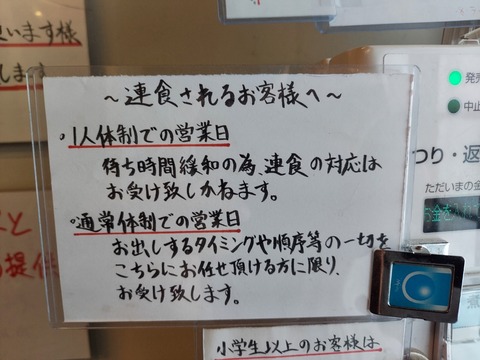 います様
します。
～連食されるお客様へ～
・1人体制での営業日
待ち時間緩和の為、連食の対応は
お受け致しかねます。
・通常体制での営業日
お出しするタイミングや順序等の一切を
こちらにお任せ頂ける方に限り、
お受け致します。
小学生以上のお客様は
と
提供
発売
中止
つり・返
ただいまの金
お金を入